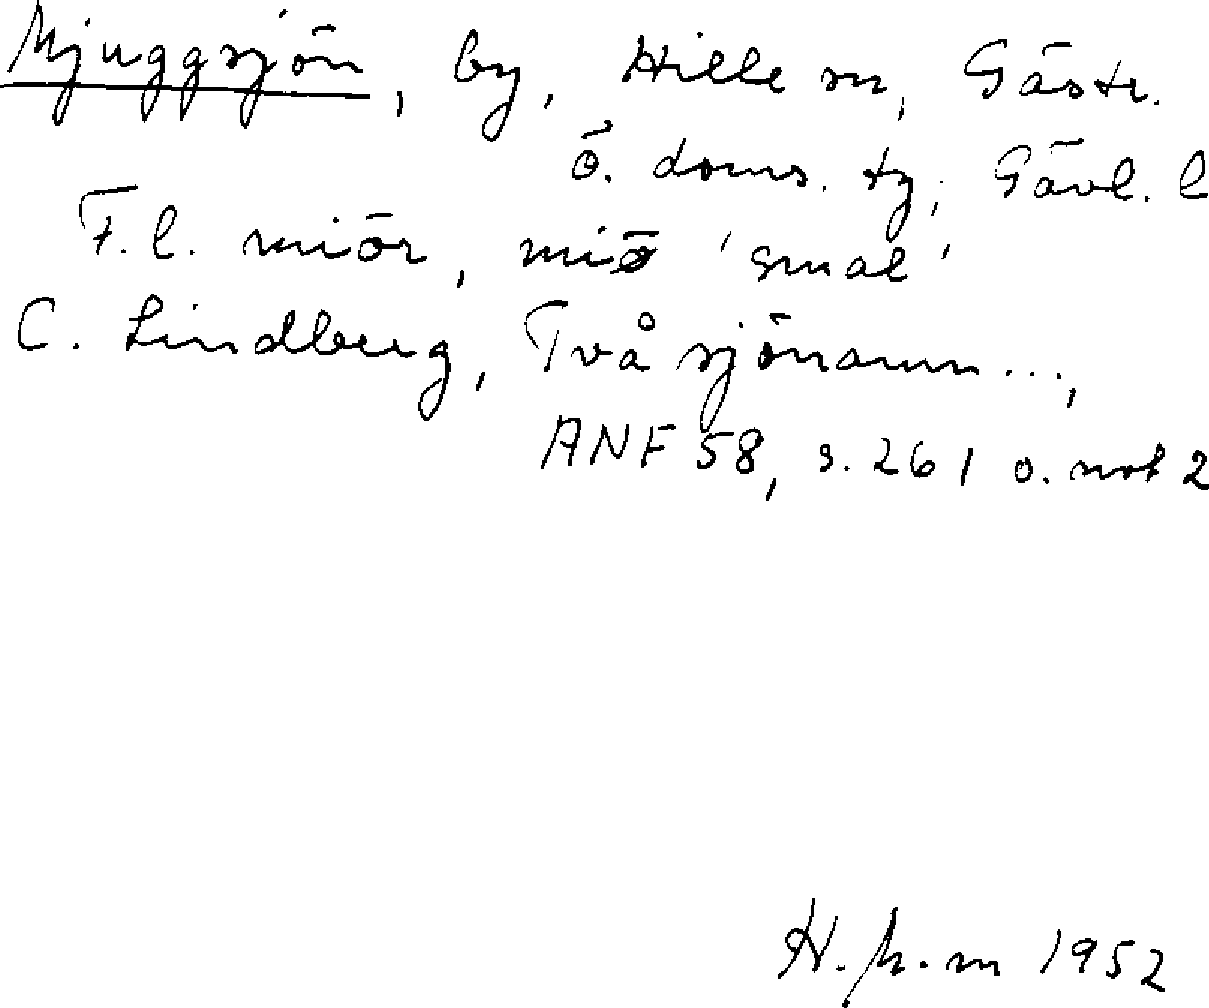 Mjuggsjön, by, Hille sn, Gästr.
ö. doms. tg, Gävl. l
F.l. miör, miö 'smal'
C. Lindberg, Två sjönamn...,
ANF 58, s. 261 o. not 2
H. 1952